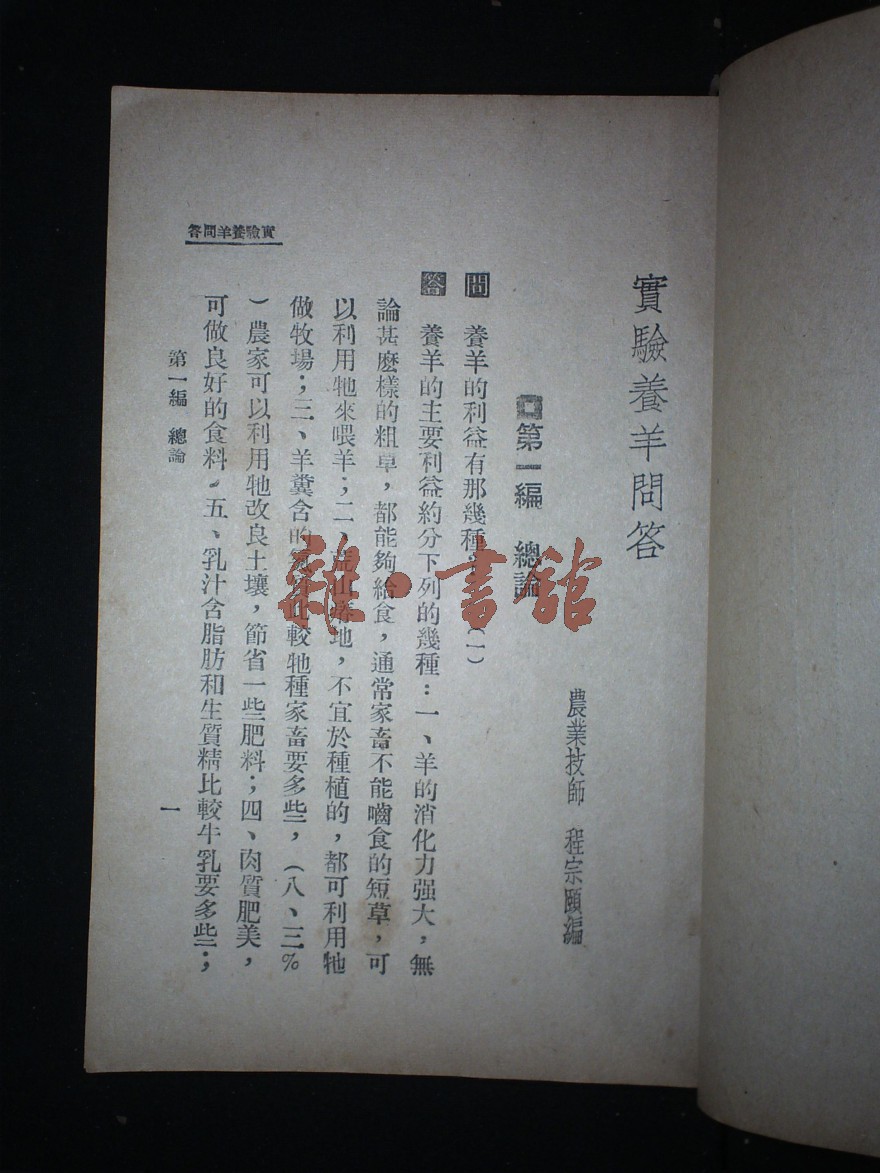 實驗養羊問答
農業技師 程宗頤編
第一編 總論
問 養羊的利益有那幾種 (一)
答 養羊的主要利益約分下列的幾種：一、羊的消化力强大，無
論甚麽樣的粗草，都能夠給食，通常家畜不能嚙食的短草，可
以利用牠來喂羊；二、荒山 地，不宜於種植的，都可利用牠
做牧場；三、羊糞含的 比較牠種家畜要多些，（八、三%
）農家可以利用牠改良土壤，節省一些肥料；四、肉質肥美，
可做良好的食料。五、乳汁含脂肪和生質精比較牛乳要多些；
實驗養羊問答
第一編 總論
一
雜·書館